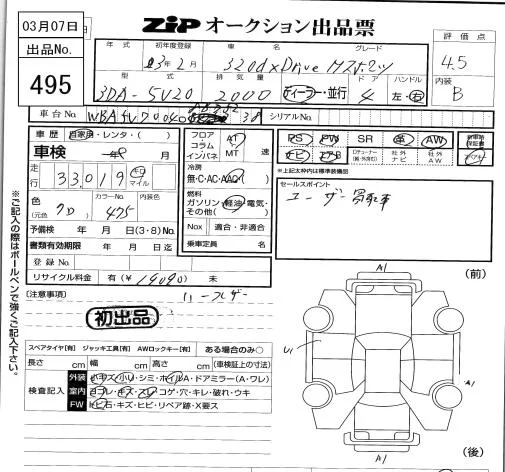 03月07日
出品No.
495
ZIP オークション出品票
評価点
4.5
内装
B
年式 初年度登録 車名 グレード
03年2月 320d xDrive Mスポーツ
型式 排気量 ドア ハンドル
3DA-5V20 2000 ディーラー・並行 4 左・右
車台No. シリアルNo.
車歴 自家用・レンタ・( )
車検 年 月
走行 33,019 キロ マイル
色 (元色) クロ カラーNo. 475 内装色
予備検 年 月 日(3・8)
書類有効期限 年 月 日迄
登録No
リサイクル料金 有(¥19090) 未
フロア コラム インパネ
AT MT 速
冷房
無・C・AC・AAC
燃料
ガソリン・軽油・電気・その他( )
Nox 適合・非適合
乗車定員 名
PS PW SR 革 AW
ナビ エアB Dチューナー(純・外含む) 社外ナビ 社外AW
新車時保証書
※上記太枠内は標準装備品
セールスポイント
ユーザー買取車
[注意事項]
初出品
A1
(前)
U1
A1
(後)
スペアタイヤ[有] ジャッキ工具[有] AWロックキー[有] ある場合のみ○
長さ cm 幅 cm 高さ cm (車検証上の寸法)
検査記入
外装 小キズ・小U・シミ・ホイルA・ドアミラー(A・ワレ)
室内 ヨゴレ・キズ・スレ・コゲ・穴・キレ・破れ・ウキ
FW トビ石・キズ・ヒビ・リペア跡・X要ス
※ご記入の際はボールペンで強くご記入下さい。